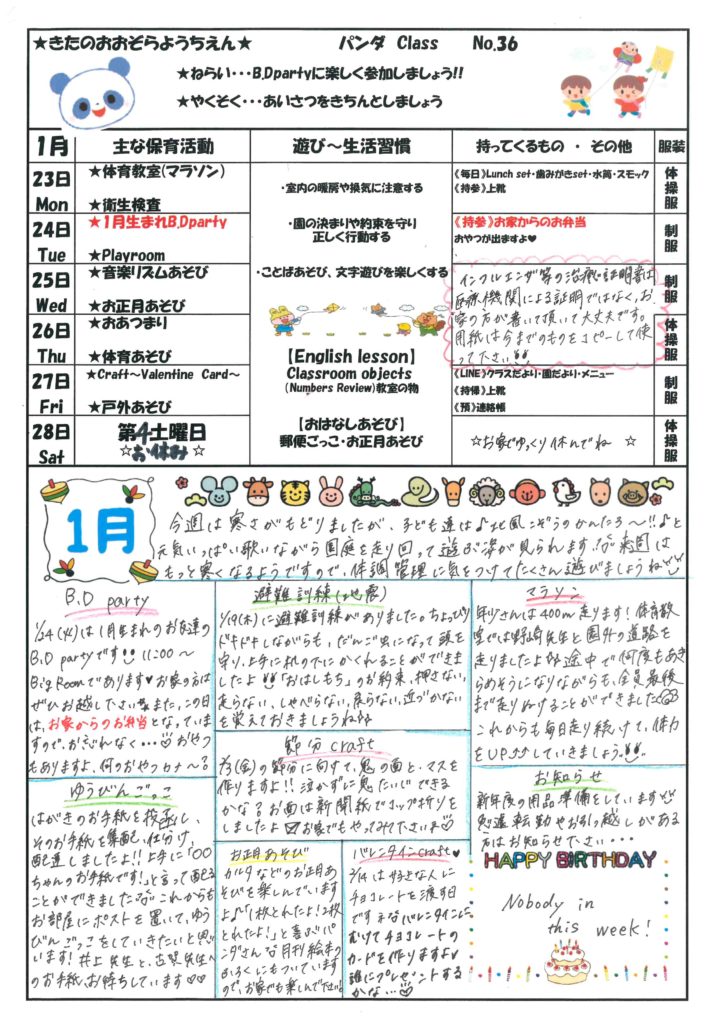 ★きたのおおぞらようちえん★ パンダ Class No.36
★ねらい･･･B.Dpartyに楽しく参加しましょう!!
★やくそく･･･あいさつをきちんとしましょう
1月 主な保育活動 遊び～生活習慣 持ってくるもの ・ その他 服装
23日 Mon
★体育教室(マラソン)
★衛生検査
《毎日》Lunch set･歯みがきset･水筒･スモック
《持参》上靴
体操服
24日 Tue
★1月生まれB.Dparty
★Playroom
《持参》お家からのお弁当
おやつが出ますよ♥
制服
25日 Wed
★音楽リズムあそび
★お正月あそび
制服
26日 Thu
★おあつまり
★体育あそび
体操服
27日 Fri
★Craft～Valentine Card～
★戸外あそび
《LINE》クラスだより・園だより・メニュー
《持帰》上靴
《預》連絡帳
制服
28日 Sat
第4土曜日
☆お休み☆
☆お家でゆっくり休んでね ☆
体操服
・室内の暖房や換気に注意する
・園の決まりや約束を守り
正しく行動する
・ことばあそび、文字遊びを楽しくする
【English lesson】
Classroom objects
(Numbers Review)教室の物
【おはなしあそび】
郵便ごっこ・お正月あそび
インフルエンザ等の治癒証明書は
医療機関による証明ではなく、お
家の方が書いて頂いて大丈夫です。
用紙は今までのものをコピーして使
って下さい!!
1月
今週は寒さがもどりましたが、子ども達は♪北風こぞうのかんたろ～!!♪と
元気いっぱい歌いながら園庭を走り回って遊ぶ姿が見られます。来週は
もっと寒くなるようですので、体調管理に気をつけてたくさん遊びましょうね
B.D party
1/24(火)は1月生まれのお友達の
B.D partyです!! 11:00～
Big Roomであります♥お家の方は
ぜひお越し下さい。また、この日
は、お家からのお弁当となっていま
すので、お忘れなく…おやつ
もありますよ、何のおやつカナ～?
避難訓練(地震)
1/19(木)に避難訓練がありました。ちょっぴり
ドキドキしながらも、だんご虫になって頭を
守り、上手に机の下にかくれることができまし
たよ!!「おはしもち」のお約束、押さない、
走らない、しゃべらない、戻らない、近づかない
を覚えておきましょうね
マラソン
年少さんは400m走ります!体育教
室では野崎先生と園外の道路を
走りましたよ 途中で何度もあき
らめそうになりながらも、全員最後
まで走りぬけることができました
これからも毎日走り続けて、体力
をUP↑↑していきましょう!!
節分 craft
2/3(金)の節分に向けて、鬼の面と、マスを
作りますよ!! 泣かずに鬼たいじできる
かな? お面は新聞紙でコップ折りを
しましたよ お家でもやってみて下さいネ♡
ゆうびんごっこ
はがきのお手紙を投函し、
そのお手紙を集配、仕分け、
配達しましたよ!!上手に「○○
ちゃんのお手紙です!」と言って配る
ことができました これからも
お部屋にポストを置いて、ゆう
びんごっこをしていきたいと思い
ます! 井上先生と、古賀先生へ
のお手紙、お待ちしています♡♡
お正月あそび
カルタなどのお正月あ
そびを楽しんでいます
よ♪「1枚とれたよ!2枚
とれたよ!」と喜ぶパ
ンダさん 月刊絵本の
ふろくにもついています
ので、お家でも楽しんで下さい!
バレンタインcraft♥
2/14は好きな人に
チョコレートを渡す日
ですネ バレンタインに
むけてチョコレートの
カードを作りますよ♥
誰にプレゼントする
かな…♡
お知らせ
新年度の用品準備をしています
急遽転勤やお引っ越しがある
方はお知らせ下さい…
HAPPY BIRTHDAY
Nobody in
this week!